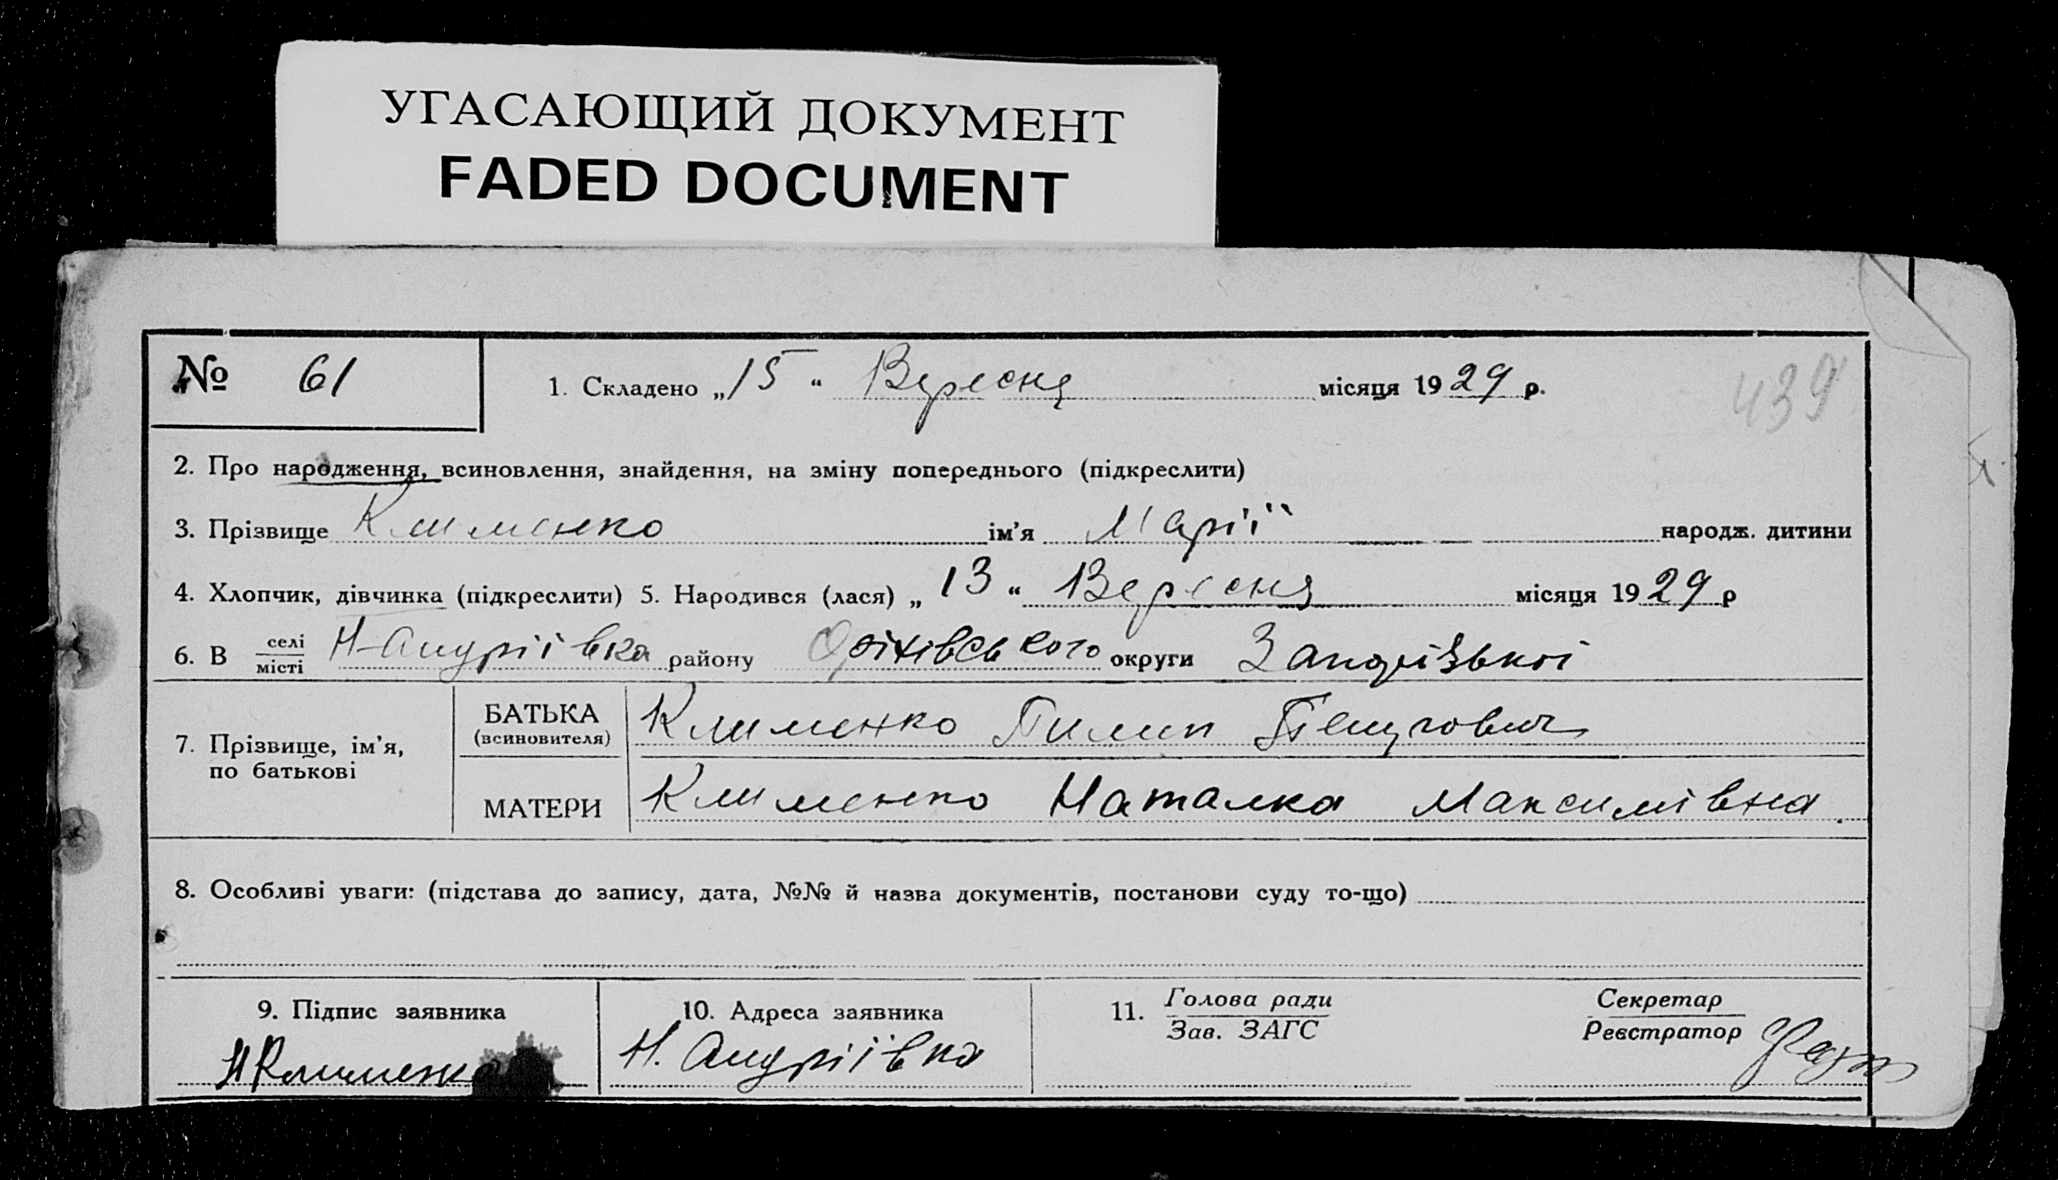 УГАСАЮЩИЙ ДОКУМЕНТ
FADED DOCUMENT
№ 61
1. Складено „15“ Вересня місяця 1929 р.
439
2. Про народження, всиновлення, знайдення, на зміну попереднього (підкреслити)
3. Прізвище Клименко ім’я Марії народж. дитини
4. Хлопчик, дівчинка (підкреслити) 5. Народився (лася) „13“ Вересня місяця 1929 р
6. В селі місті Н-Андріївка району Оріхівського округи Запорізької
7. Прізвище, ім’я, по батькові
БАТЬКА (всиновителя) Клименко Пилип
МАТЕРИ Клименко Наталка Максимівна
8. Особливі уваги: (підстава до запису, дата, №№ й назва документів, постанови суду то-що)
9. Підпис заявника
Н Клименко
10. Адреса заявника
Н. Андріївка
11. Голова ради Зав. ЗАГС
Секретар Реєстратор